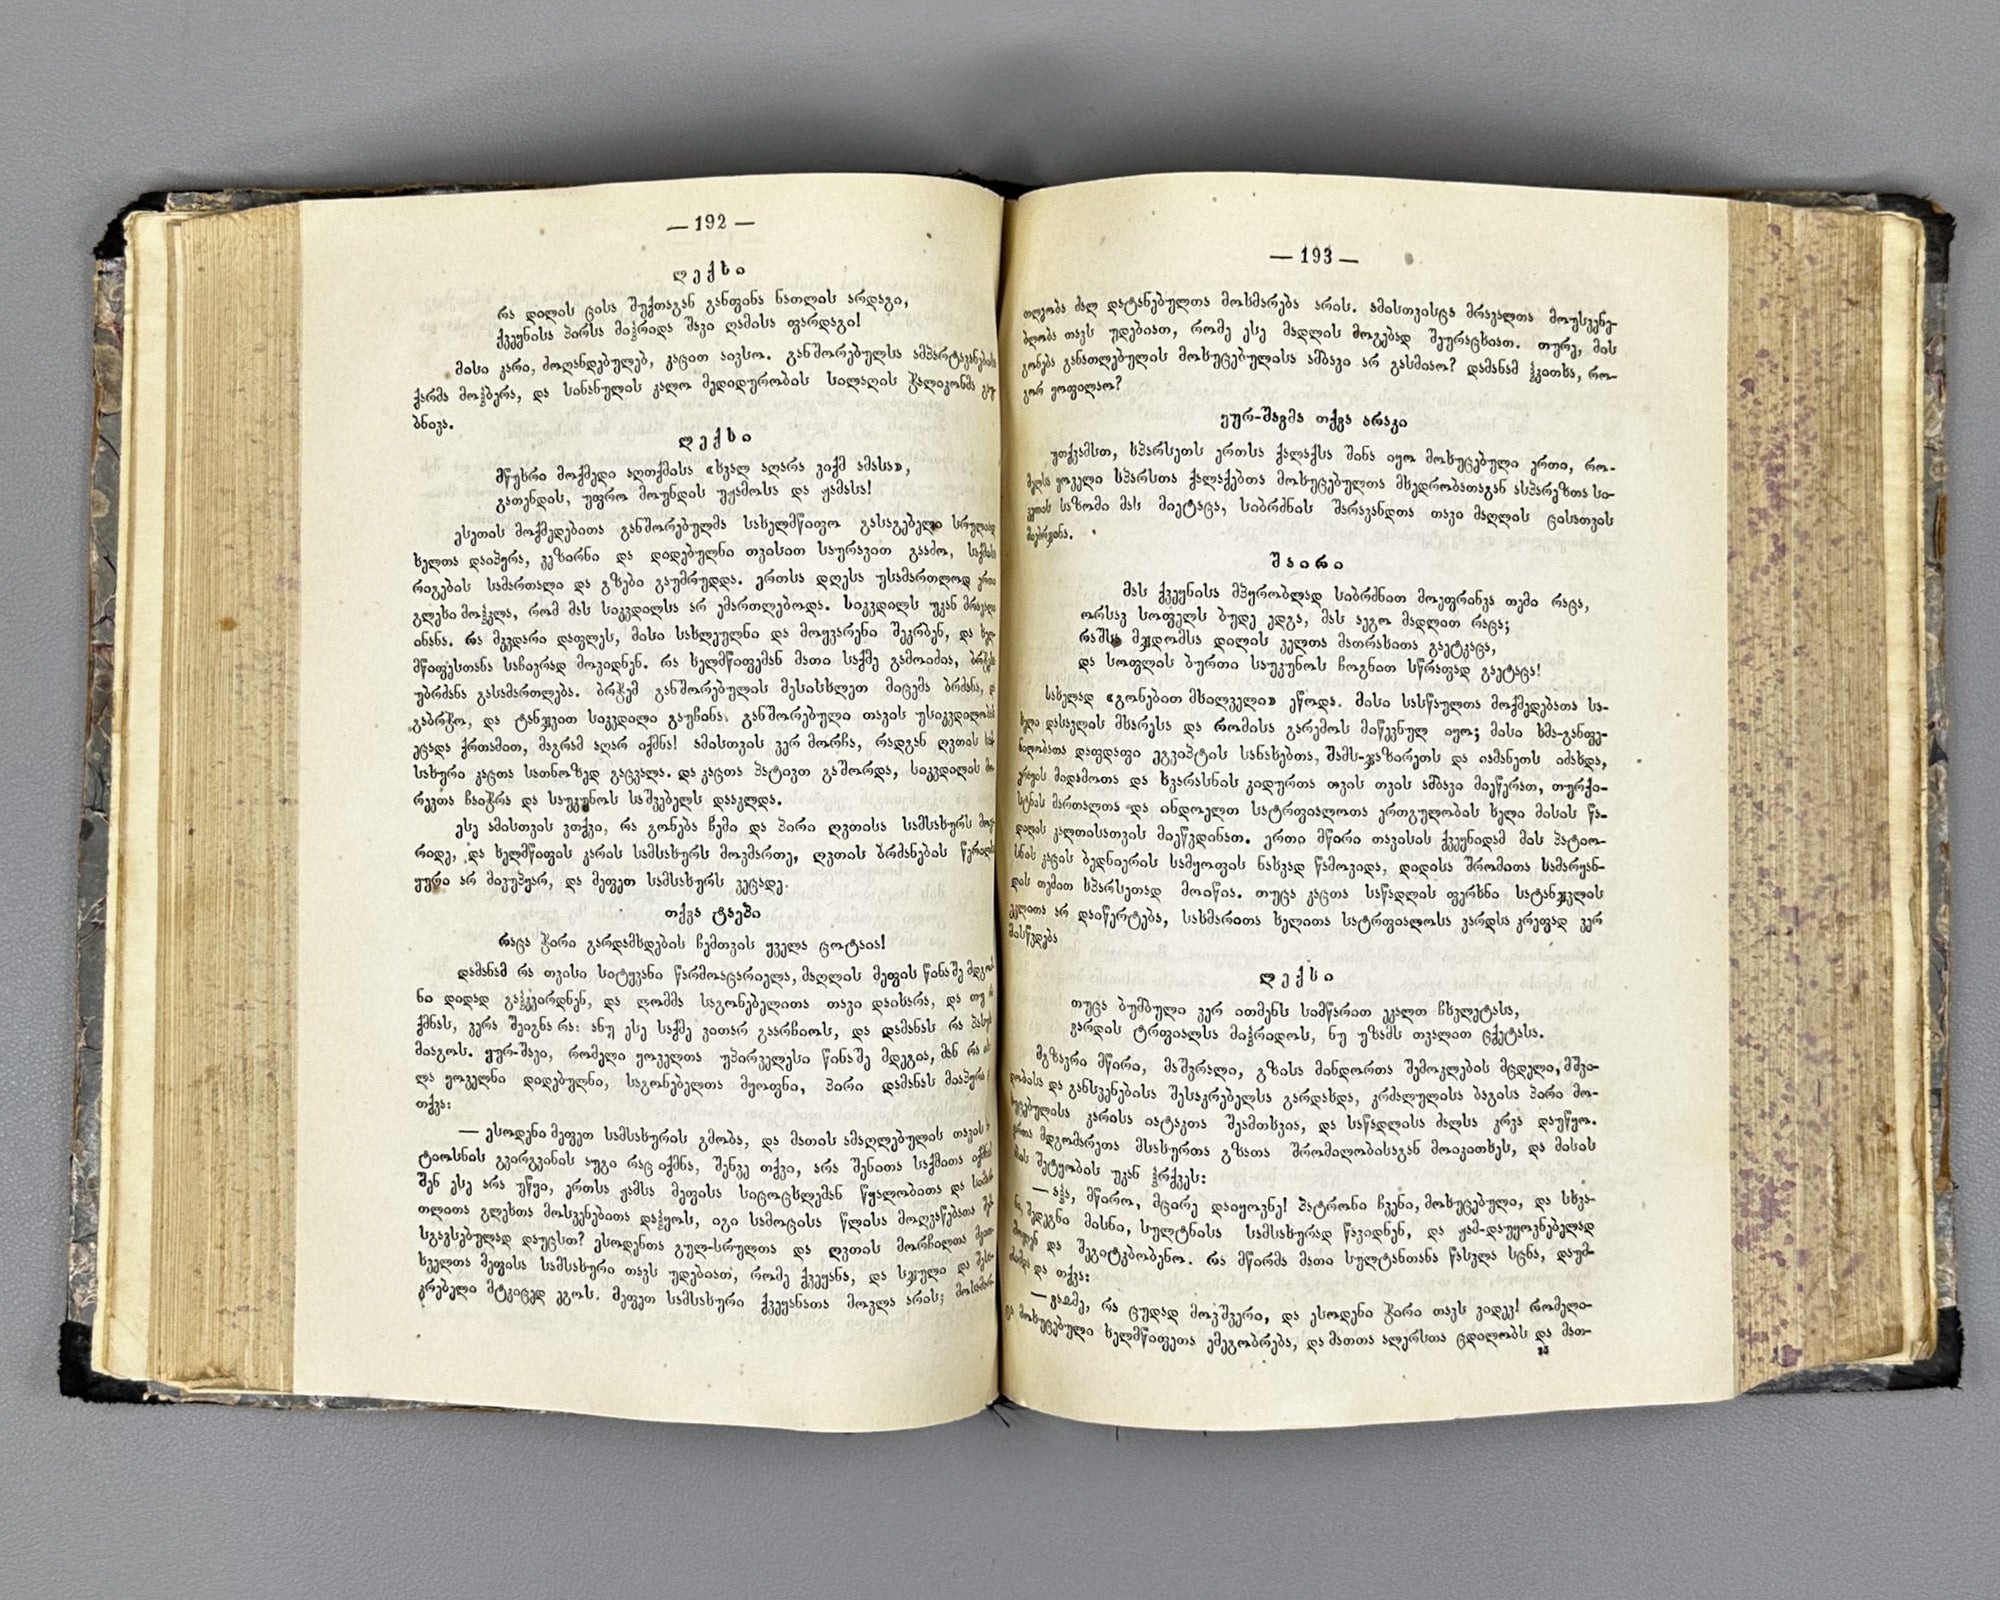 — 192 —
ლექსი
რა დილის ცისა შუქთაგან განფინა ნათლის არდაგი,
ქვეყნისა პირსა მიჰრიდა შავი ღამისა ფარდაგი!
მისი კარი, ძოღანდებულებ, კაცით აივსო. განშორებულსა ამპარტავანების
ქარმა მოჰბერა, და სინანულის კალო მედიდურობის სილაღის ჭალიკონმა
ბნივა.
ლექსი
მწუხრი მოქმედი აღთქმისა «ხვალ აღარა ვიქმ ამასა»,
გათენდის, უფრო მოუნდის უჟამოსა და ჟამასა!
ესეთის მოქმედებითა განშორებულმა სახელმწიფო გასაგებელი სრულიად
ხელთა დაიპყრა, ვეზირნი და დიდებულნი თვისით საურავით გააძო, საქმისა
რიგების სამართალი და გზები გაუმრუდდა. ერთსა დღესა უსამართლოდ ერთი
გლეხი მოჰკლა, რომ მას სიკვდილსა არ ემართლებოდა. სიკვდილს უკან მრავალი
ინანა. რა მკვდარი დაფლეს, მისი სახლეულნი და მოყვარენი შეკრბენ, და
მწიფესთანა საჩივრად მოვიდნენ. რა ხელმწიფემან მათი საქმე გამოიძია,
უბრძანა გასამართლება. ბრჭემ განშორებულის მესისხლეთ მიცემა ბრძანა,
გაბრჭო, და ტანჯვით სიკვდილი გაუჩინა. განშორებული თავის უსიკვდილობას
ეცადა ქრთამით, მაგრამ აღარ იქმნა! ამისთვის ვერ მორჩა, რადგან ღვთის
სახური კაცთა სათნოზედ გაცვალა. და კაცთა პატივთ გაშორდა, სიკვდილის
რევთა ჩაიჭრა და საუკუნოს საშვებელს დააკლდა.
ესე ამისთვის ვთქვი, რა გონება ჩემი და პირი ღვთისა სამსახურს
რიდე, და ხელმწიფის კარის სამსახურს მოვმართე, ღვთის ბრძანების წერილს
ყური არ მივუპყარ, და მეფეთ სამსახურს ვეცადე.
თქვა ტაეპი
რაცა ჭირი გარდამხდების ჩემთვის ყველა ცოტაია!
დამანამ რა თვისი სიტყვანი წარმოაცარიელა, მაღლის მეფის წინაშე
ნი დიდად გაჰკვირდნენ, და ლომმა საგონებელითა თავი დაიხარა, და თუ
ქმნას, ვერა შეიგნა რა: ანუ ესე საქმე ვითარ გაარჩიოს, და დამანას რა
მიაგოს. ყურ-შავი, რომელი ყოველთა უპირველესი წინაშე მდეგია, მან რა
ლა ყოველნი დიდებულნი, საგონებელთა მყოფნი, პირი დამანას მიაპყრა
თქვა:
— ესოდენი მეფეთ სამსახურის გმობა, და მათის ამაღლებულის თავის
ტიოსნის გვირგვინის აუგი რაც იქმნა, შენვე თქვი, არა შენითა საქმითა
შენ ესე არა უწყი, ერთსა ჟამსა მეფისა სიცოცხლემან წყალობითა და
თლითა გლეხთა მოსვენებითა დაჰყოს, იგი სამოცისა წლისა მოღვაწებათა
სგავსებულად დაუცხთ? ესოდენთა გულ-სრულთა და ღვთის მორჩილთა
ხველთა მეფისა სამსახური თავს უდებიათ, რომე ქვეყანა, და სჯული და
კრებელი მტკიცედ ეგოს. მეფეთ სამსახური ქვეყანათა მოვლა არის;
— 193 —
თლეობა ძალ დატანებულთა მოხმარება არის. ამისთვისცა მრავალთა მოუსვენე-
ბლობა თავს უდებიათ, რომე ესე მადლის მოგებად შეურაცხიათ. თურე, მის
გონება განათლებულის მოხუცებულისა ამბავი არ გასმიაო? დამანამ ჰკითხა, რო-
გორ ყოფილაო?
ყურ-შავმა თქვა არაკი
უთქვამსთ, სპარსეთს ერთსა ქალაქსა შინა იყო მოხუცებული ერთი, რო-
მელსა ყოველი სპარსთა ქალაქებთა მოხუცებულთა მხედრობათაგან ასპარეზთა სი-
კეთის საზომი მას მიეტაცა, სიბრძნის შარავანდთა თავი მაღლის ცისათვის
მიებრჯინა.
შაირი
მას ქვეყნისა მპყრობლად სიბრძნით მოეფრინვა თემი რაცა,
ორსავ სოფელს ბუდე ედგა, მას აეგო მადლით რაცა;
რაშსა მჯდომსა დილის ველთა მათრახითა გაეტკაცა,
და სოფლის ბურთი საუკუნოს ჩოგნით სწრაფად გაეტაცა!
სახელად «გონებით მხილველი» ეწოდა. მისი სასწაულთა მოქმედებათა სა-
ხელი დასავლის მხარესა და რომისა გარემოს მიწევნულ იყო; მისი ხმა-განფე-
ნილობათა დაფდაფი ეგვიპტის სანახებთა, შამს-ჯაზირეთს და იამანეთს იძახდა,
ერაყის მიდამოთა და ხვარასნის კიდურთა თვის თვის ამბავი მიეწერათ, თურქი-
სტნის მართალთა და ინდოელთ სატრფიალოთა ერთგულობის ხელი მისის წა-
დილის კალთისათვის მიეწვდინათ. ერთი მწირი თავისის ქვეყნიდამ მის პატიო-
სნის კაცის ბედნიერის სამყოფის ნახვად წამოვიდა, დიდისა შრომითა სამარყან-
დის თემით სპარსეთად მოიწია. თუცა კაცთა საწადლის ფერხნი სატანჯველის
ეკლითა არ დაიწერტება, სახმარითა ხელითა სატრფიალოსა ვარდსა კრეფად ვერ
მისწვდება
ლექსი
თუცა ბუმბული ვერ ითმენს სიმწარით ეკალთ ჩხვლეტასა,
ვარდის ტრფიალსა მიჰრიდოს, ნუ უზამს თვალით ცქეტასა.
მგზავრი მწირი, მაშვრალი, გზისა მინდორთა შემოკლების მცდელი, მშვი-
დობისა და განსვენებისა შესაკრებელსა გარდახდა, კრძალულისა ბაგისა პირი მო-
ხუცებულისა კარისა იატაკთა შეამთხვია, და საწადლისა ძალსა კრვა დაუწყო.
კართა მდგომარეთა მსახურთა გზათა შრომილობისაგან მოიკითხეს, და მისის
მის შეტყობის უკან ჰრქვეს:
— აჰა, მწირო, მცირე დაიყოვნე! პატრონი ჩვენი, მოხუცებული, და სხვა-
ნი შედეგნი მისნი, სულტნისა სამსახურად წავიდნენ, და ჟამ-დაუყოვნებელად
მოვლენ და შეგიტკბობენო. რა მწირმა მათი სულტანთანა წასვლა სცნა, დაუმ-
ძიმდა და თქვა:
— ვაჲმე, რა ცუდად მოვშვერი, და ესოდენი ჭირი თავს ვიდევ! რომელი-
ცა მოხუცებული ხელმწიფეთა ემეგობრება, და მათთა ალერსთა ცდილობს და მათ-
25